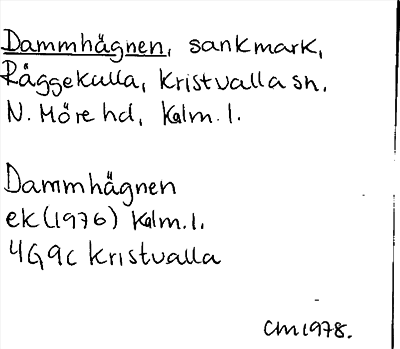 Dammhägnen, sankmark,
Räggekulla, Kristvalla sn,
N. Möre hd, Kalm. l.
Dammhägnen
ek (1976) Kalm. l.
4G9c Kristvalla
CM 1978.